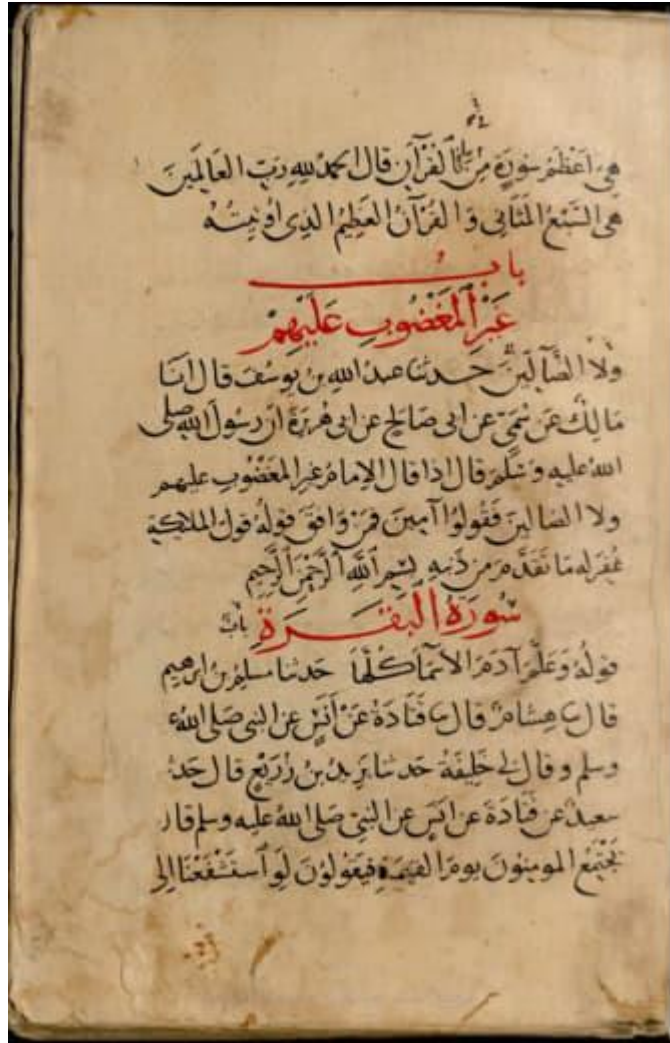 هي اَعْظَمُ سُورَةٍ مِنَ القُرْآنِ قال الحمدُ للهِ رَبِّ العَالَمِينَ
هي السَّبْعُ المَثَانِي وَالقُرْآنُ العَظِيمُ الذي اُوتِيتُهُ
بابُ
غَيْرِ المَغْضُوبِ عَلَيْهِمْ
ولا الضَّالِّينَ حَدثنا عبدُ الله بن يوسُفَ قال انا
مَالِكٌ عَن سُمَيٍّ عن ابى صَالِحٍ عن ابى هُرَيْرَةَ ان رسُولَ الله صلى
اللهُ عليه وَسَلَّمَ قال اذا قال الإمامُ غيرِ المغضُوبِ عليهم
ولا الضالين فَقُولُوا آمين فمَنْ وَافَقَ قولُهُ قولَ الملايكة
غُفِرَ له مَا تقَدَّمَ من ذَنبِهِ بِسْمِ اللَّهِ الرَّحْمَنِ الرَّحِيمِ
سُورَةُ البَقَرَةِ بابُ
قولُهُ وَعَلَّمَ آدَمَ الأسْمَا كُلَّهَا حدثنا مسلمُ بن ابرهيم
قال نا هِشامٌ قال نا قَتَادَةُ عَنْ أنَسٍ عن النبي صَلى اللهُ ع
وسلم وقال لي خَلِيفَةُ حدثنا يَزِيدُ بن زُرَيْعٍ قال حَدثـ
سعيدٌ عن قَتَادَةَ عن انَسٍ عن النبيّ صَلى اللهُ عليه وسلم قا
يَجْتَمِعُ المومنُونَ يومَ القيمَةِ فيَقولُونَ لَوِ اسْتَشْفَعْنَا إلى